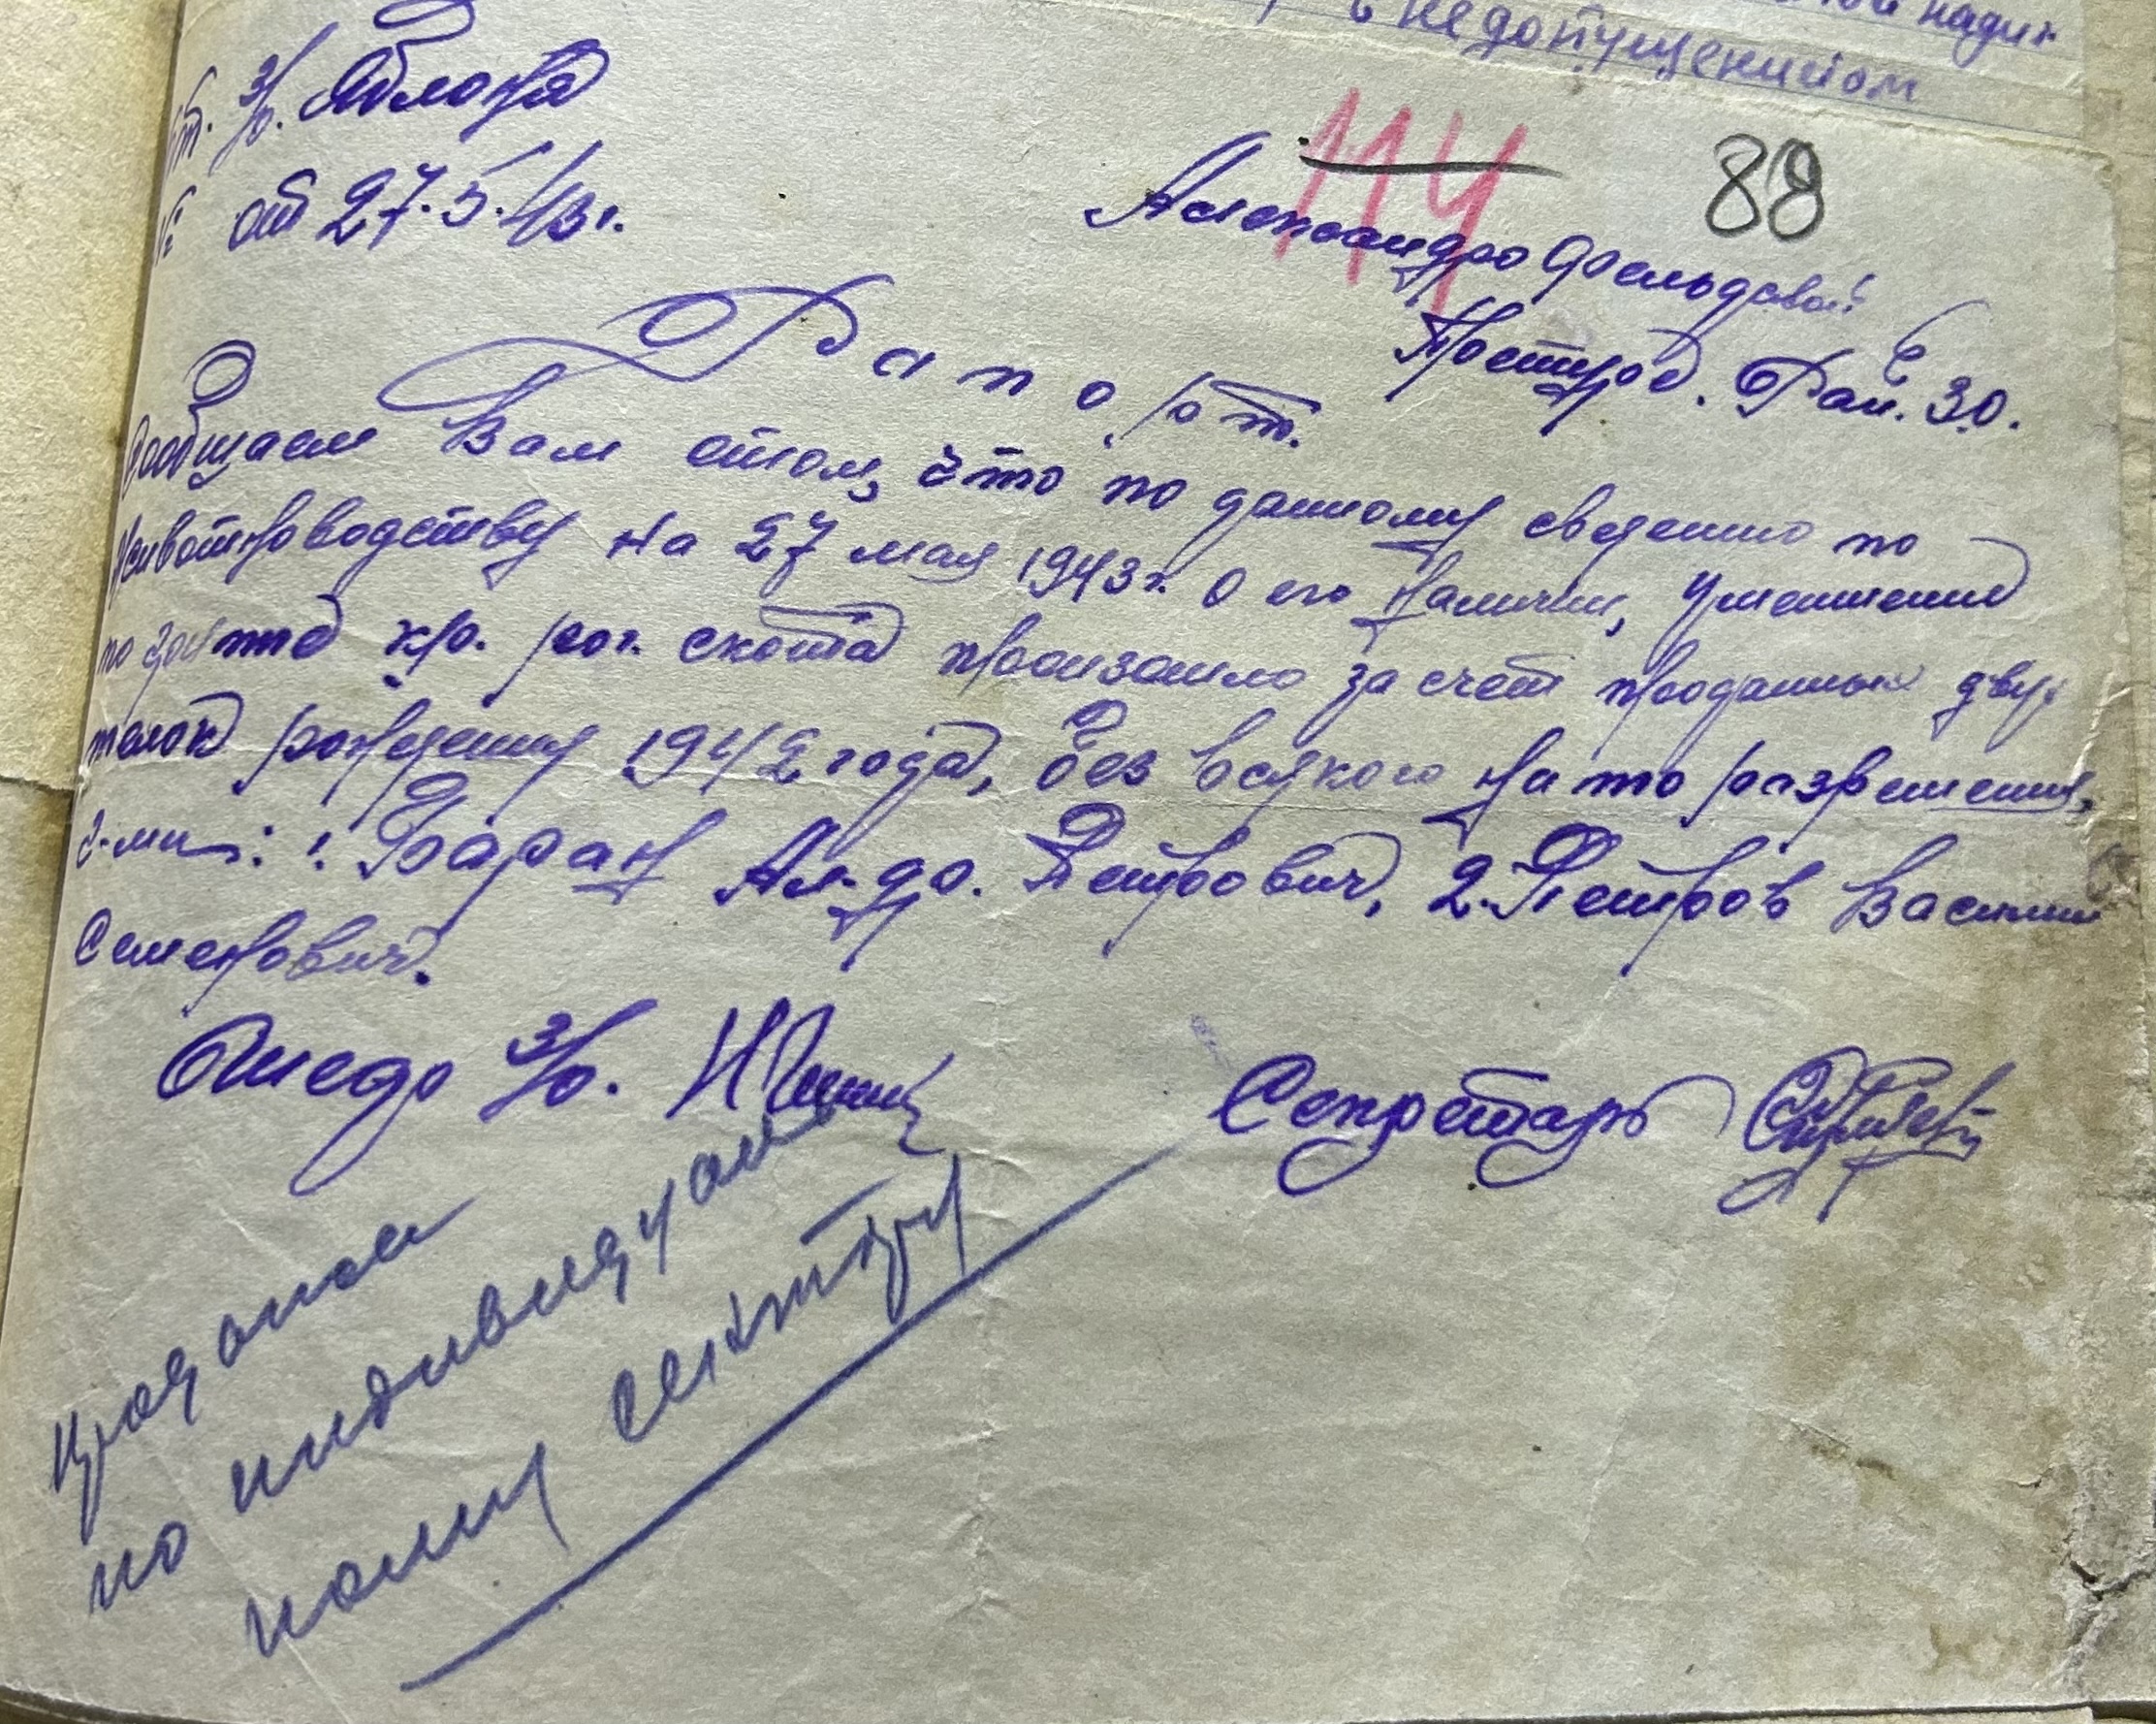 недопущением
ст. З/о. Яблоня
№ от 27.5.43 г.
114 88
Александрофельдовой
Постпред. Рай. З.О.
Рапорт.
Сообщаем Вам отом, что по данному сведению по
животноводству на 27 мая 1943 г. о его наличии, уменшение
кр. рог. скота произошло за счёт проданных двух
телок рождения 1942 года, без всякого на то разрешения,
г-ми: 1. Баран Ал-др. Петрович, 2. Петров Василий
Семенович.
З/о.
Секретарь
продан
по индивидуаль
ному сектору